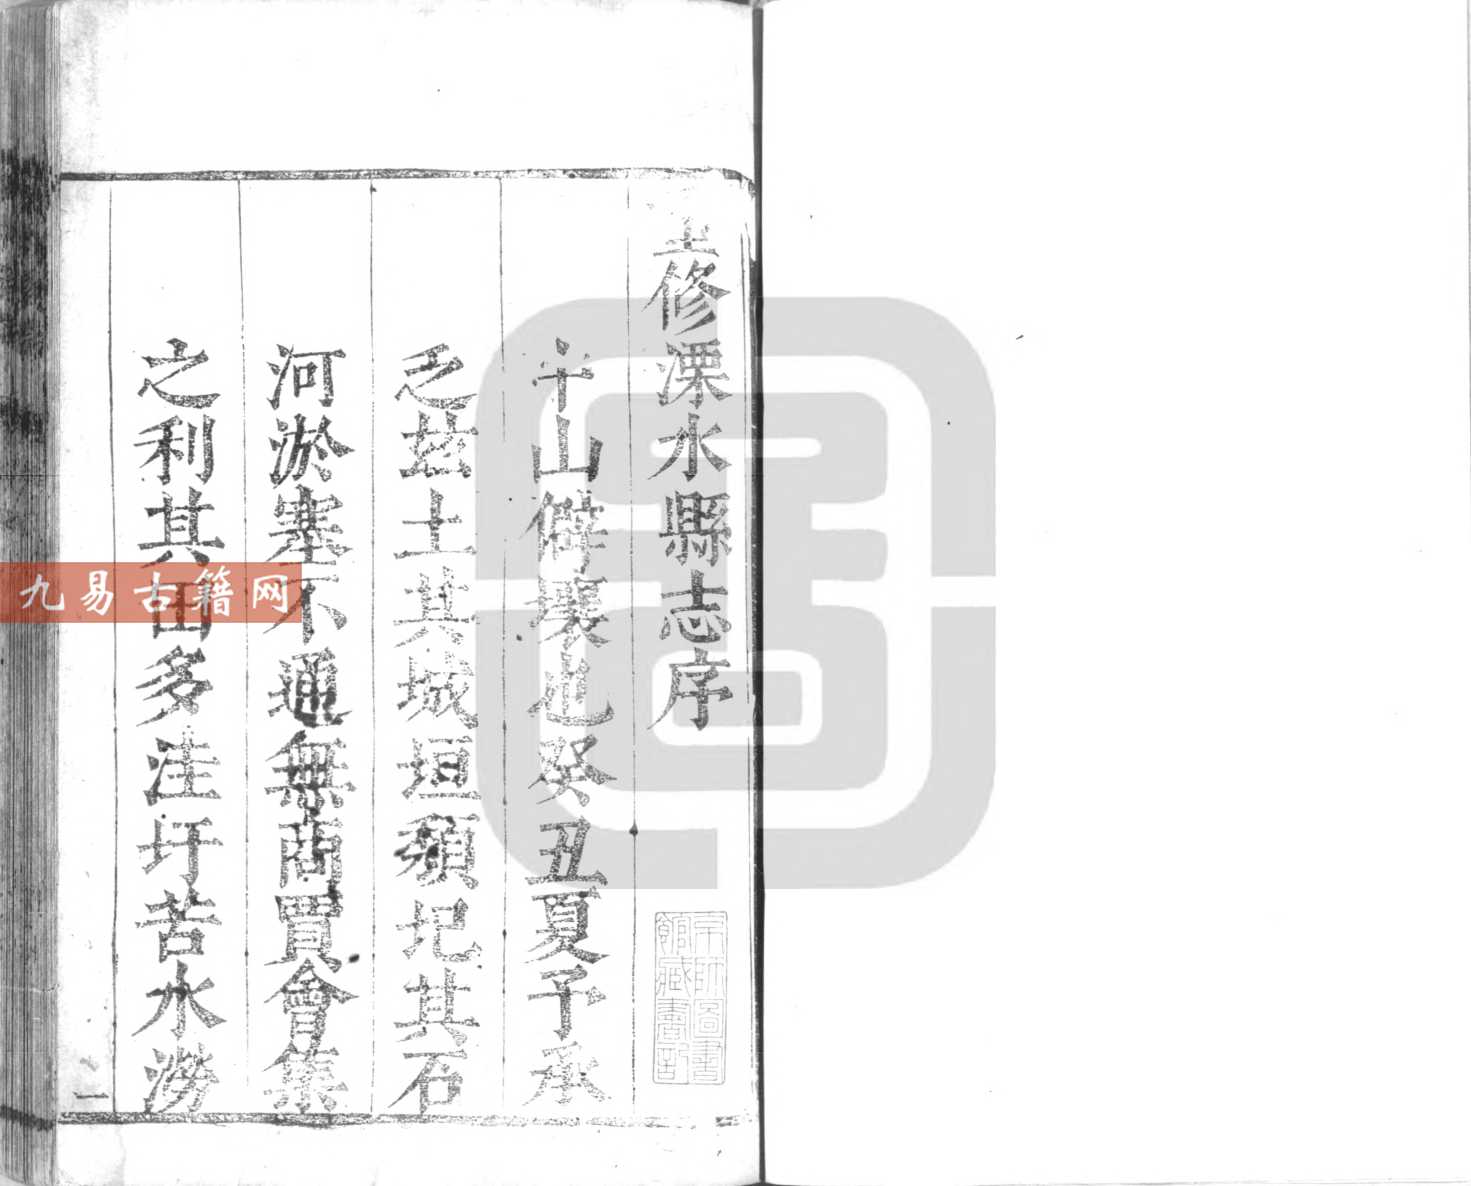 修溧水縣志序
山僻壤也癸丑夏予承
乏玆土其城垣頹圮其石
河淤塞不通無商賈會集
之利其田多洼圩苦水澇
一
九易古籍网